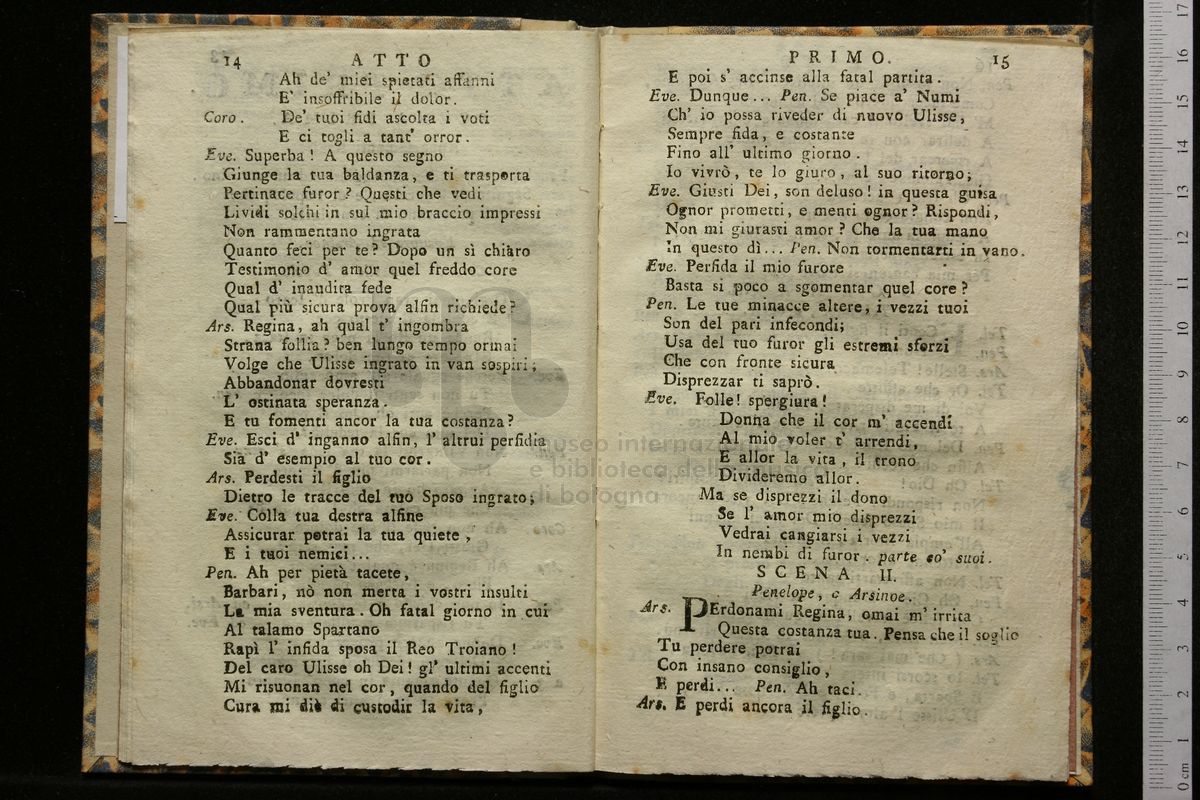 14 ATTO
Ah de' miei spietati affanni
E' insoffribile il dolor.
Coro. De' tuoi fidi ascolta i voti
E ci togli a tant' orror.
Eve. Superba! A questo segno
Giunge la tua baldanza, e ti trasporta
Pertinace furor? Questi che vedi
Lividi solchi in sul mio braccio impressi
Non rammentano ingrata
Quanto feci per te? Dopo un sì chiaro
Testimonio d' amor quel freddo core
Qual d' inaudita fede
Qual più sicura prova alfin richiede?
Ars. Regina, ah qual t' ingombra
Strana follia? ben lungo tempo ormai
Volge che Ulisse ingrato in van sospiri;
Abbandonar dovresti
L' ostinata speranza.
E tu fomenti ancor la tua costanza?
Eve. Esci d' inganno alfin, l' altrui perfidia
Sia d' esempio al tuo cor.
Ars. Perdesti il figlio
Dietro le tracce del tuo Sposo ingrato;
Eve. Colla tua destra alfine
Assicurar potrai la tua quiete,
E i tuoi nemici...
Pen. Ah per pietà tacete,
Barbari, nò non merta i vostri insulti
La mia sventura. Oh fatal giorno in cui
Al talamo Spartano
Rapì l' infida sposa il Reo Troiano!
Del caro Ulisse oh Dei! gl' ultimi accenti
Mi risuonan nel cor, quando del figlio
Cura mi diè di custodir la vita,
PRIMO. 15
E poi s' accinse alla fatal partita.
Eve. Dunque... Pen. Se piace a' Numi
Ch' io possa riveder di nuovo Ulisse,
Sempre fida, e costante
Fino all' ultimo giorno.
Io vivrò, te lo giuro, al suo ritorno;
Eve. Giusti Dei, son deluso! in questa guisa
Ognor prometti, e menti ognor? Rispondi,
Non mi giurasti amor? Che la tua mano
In questo dì... Pen. Non tormentarti in vano.
Eve. Perfida il mio furore
Basta sì poco a sgomentar quel core?
Pen. Le tue minacce altere, i vezzi tuoi
Son del pari infecondi;
Usa del tuo furor gli estremi sforzi
Che con fronte sicura
Disprezzar ti saprò.
Eve. Folle! spergiura!
Donna che il cor m' accendi
Al mio voler t' arrendi,
E allor la vita, il trono
Divideremo allor.
Ma se disprezzi il dono
Se l' amor mio disprezzi
Vedrai cangiarsi i vezzi
In nembi di furor. parte co' suoi.
SCENA II.
Penelope, e Arsinoe.
Ars. PErdonami Regina, omai m' irrita
Questa costanza tua. Pensa che il soglio
Tu perdere potrai
Con insano consiglio,
E perdi... Pen. Ah taci.
Ars. E perdi ancora il figlio.
museo internazionale
e biblioteca della musica
di bologna
0 cm 1 2 3 4 5 6 7 8 9 10 11 12 13 14 15 16 17